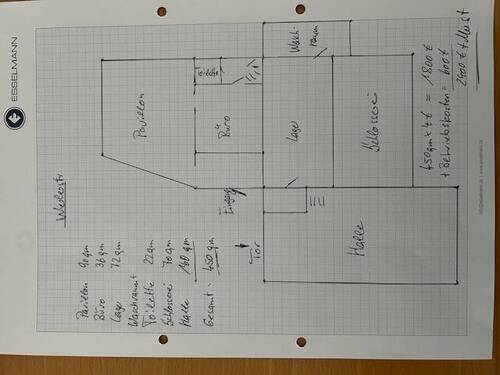 ESSELMANN
Pavillon
Toilette
Wasch
raum
Büro
Lager
Schlosserei
Eingang
Tor
Halle
Pavillon 90 qm
Büro 36 qm
Lager 72 qm
Waschraum +
Toilette 22 qm
Schlosserei 70 qm
Halle 160 qm
Gesamt: 450 qm
450 qm x 4 € = 1800 €
+ Betriebskosten = 600 €
2400 € + MwSt